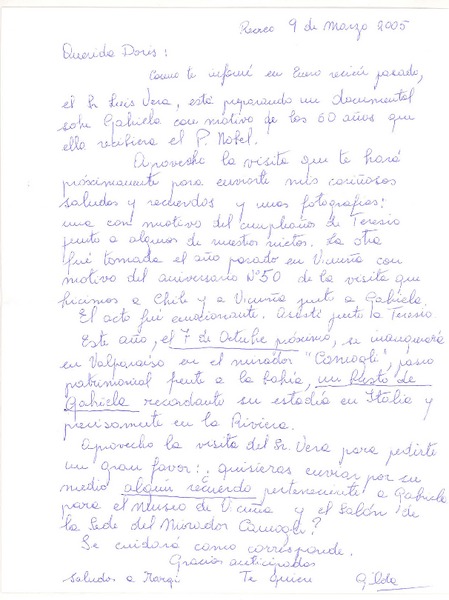 Recreo 9 de Marzo 2005
Querida Doris:
Como te informé en Enero recién pasado,
el Sr Luis Vera, está preparando un documental
sobre Gabriela con motivo de los 60 años que
ella recibiera el P. Nobel.
Aprovecho la visita que te hará
próximamente para enviarte mis cariñosos
saludos y recuerdos y unas fotografías:
una con motivo del cumpleaños de Teresio
junto a algunos de nuestros nietos. La otra
fué tomada el año pasado en Vicuña con
motivo del aniversario Nº50 de la visita que
hicimos a Chile y a Vicuña junto a Gabriela.
El acto fué emocionante. Asistí junto la Teresio.
Este año, el 7 de Octubre próximo, se inaugurará
en Valparaíso en el mirador "Camogli", paseo
patrimonial frente a la bahía, un busto de
Gabriela recordando su estadía en Italia y
precisamente en la Riviera.
Aprovecho la visita del Sr. Vera para pedirte
un gran favor: ¿quisieras enviar por su
medio algún recuerdo perteneciente a Gabriela
para el Museo de Vicuña y el Salón de
la Sede del Mirador Camogli?
Se cuidará como corresponde.
Gracias anticipadas
saludos a Margi Te quiere Gilda